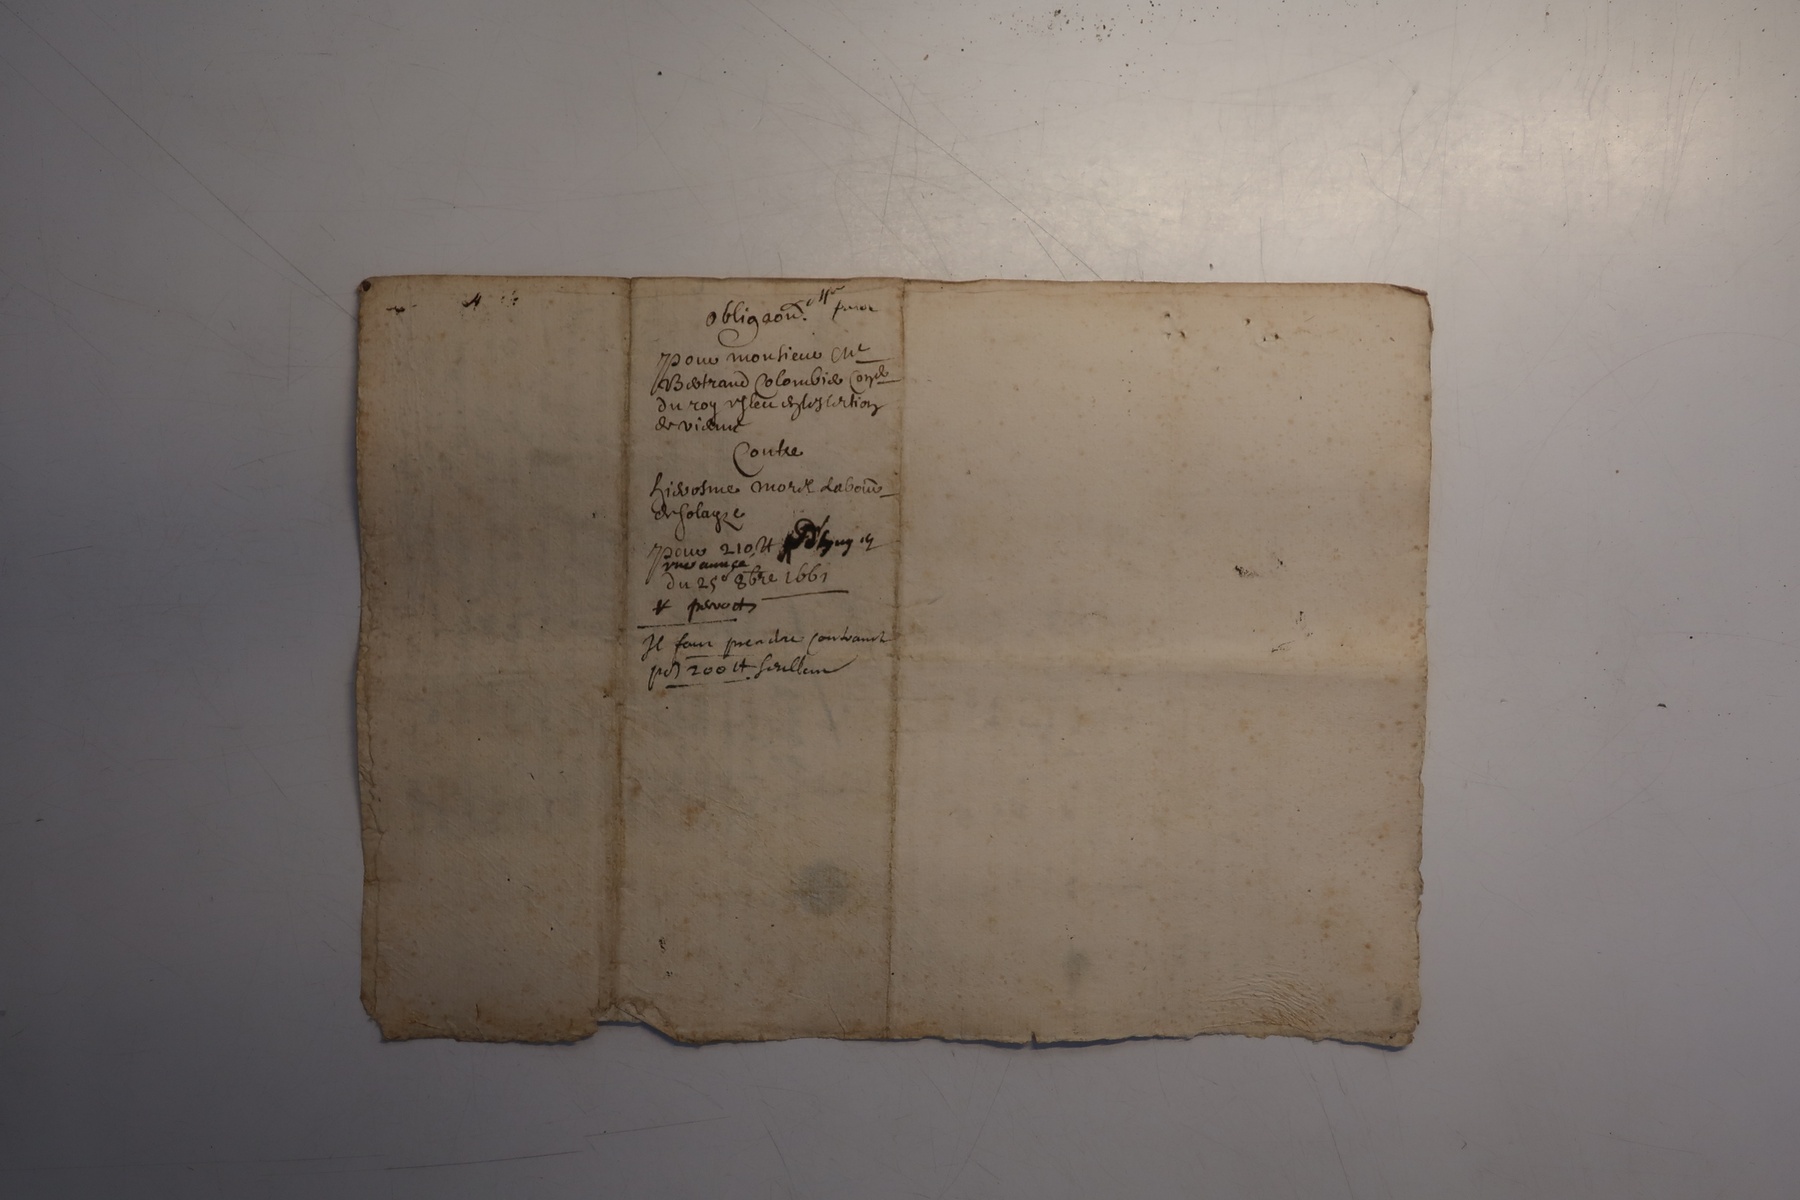 obligaon.
Pour monsieur Me
Bertrand Colombier Con.er
du roy esleu en leslection
de vienne
Contre
hierosme morel Labour
de solayze
Pour 210 tt
une année
du 25e 8bre 1661
Il faut prendre contrainte
200 tt seullem